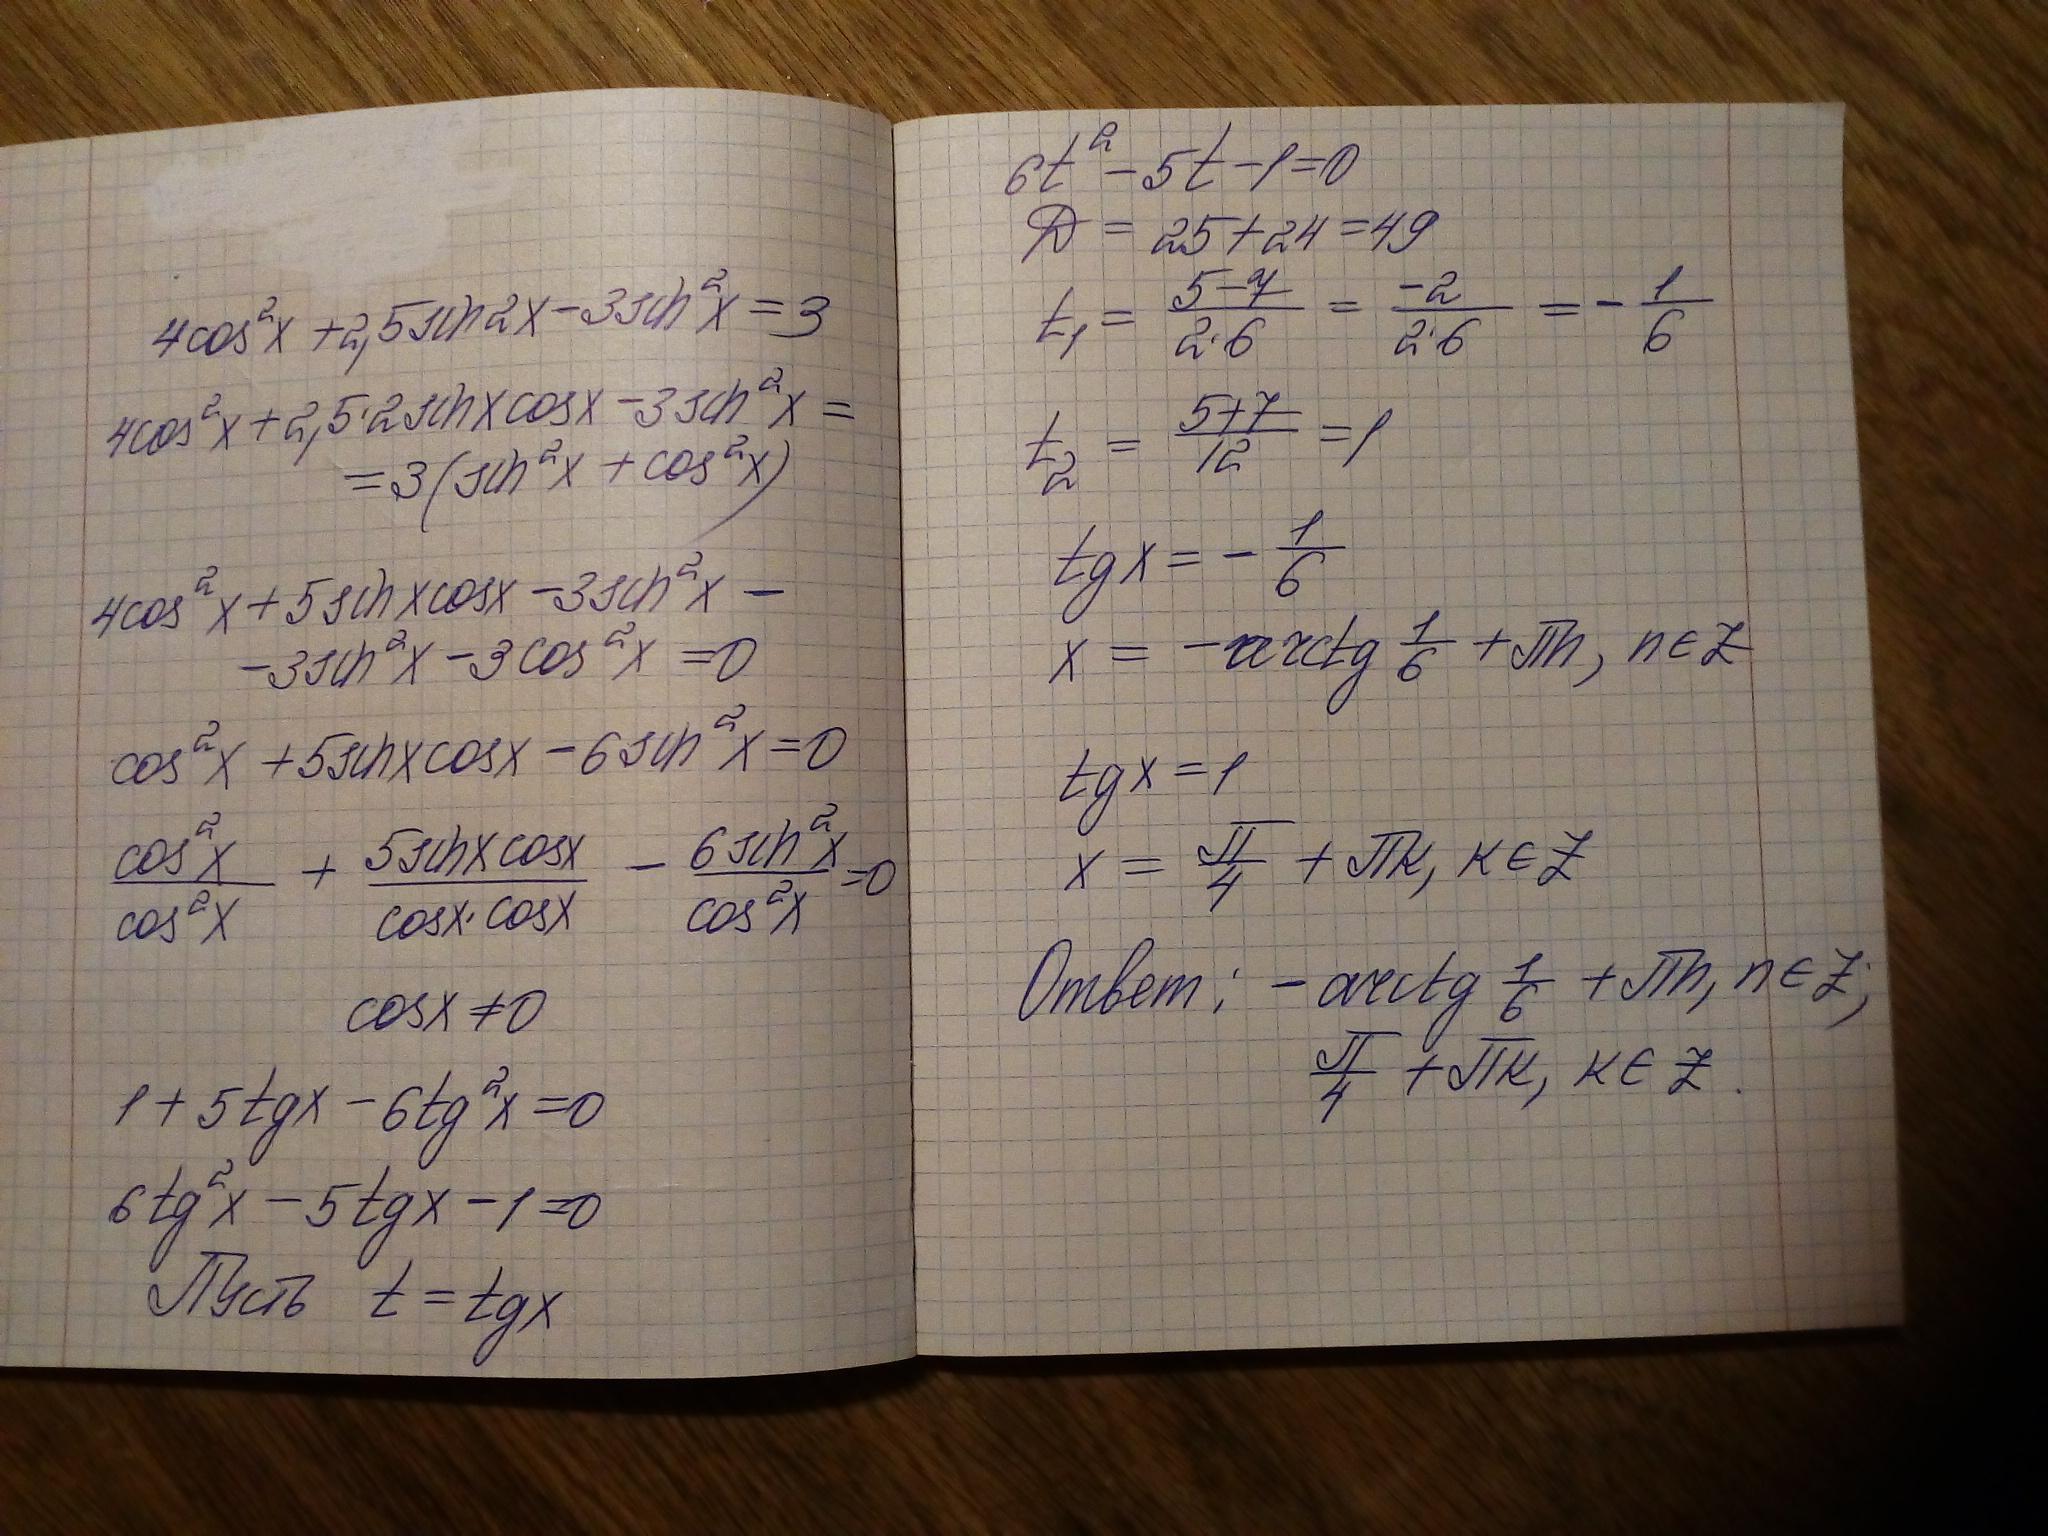 4cos²x + 2,5sin2x - 3sin²x = 3
4cos²x + 2,5·2sinxcosx - 3sin²x =
= 3(sin²x + cos²x)
4cos²x + 5sinxcosx - 3sin²x -
- 3sin²x - 3cos²x = 0
cos²x + 5sinxcosx - 6sin²x = 0
cos²x/cos²x + 5sinxcosx/cosx·cosx - 6sin²x/cos²x = 0
cosx ≠ 0
1 + 5tgx - 6tg²x = 0
6tg²x - 5tgx - 1 = 0
Пусть t = tgx
6t² - 5t - 1 = 0
D = 25 + 24 = 49
t₁ = 5-7/2·6 = -2/2·6 = - 1/6
t₂ = 5+7/12 = 1
tgx = - 1/6
x = - arctg 1/6 + πn, n ∈ Z
tgx = 1
x = π/4 + πk, k ∈ Z
Ответ: - arctg 1/6 + πn, n ∈ Z;
π/4 + πk, k ∈ Z.